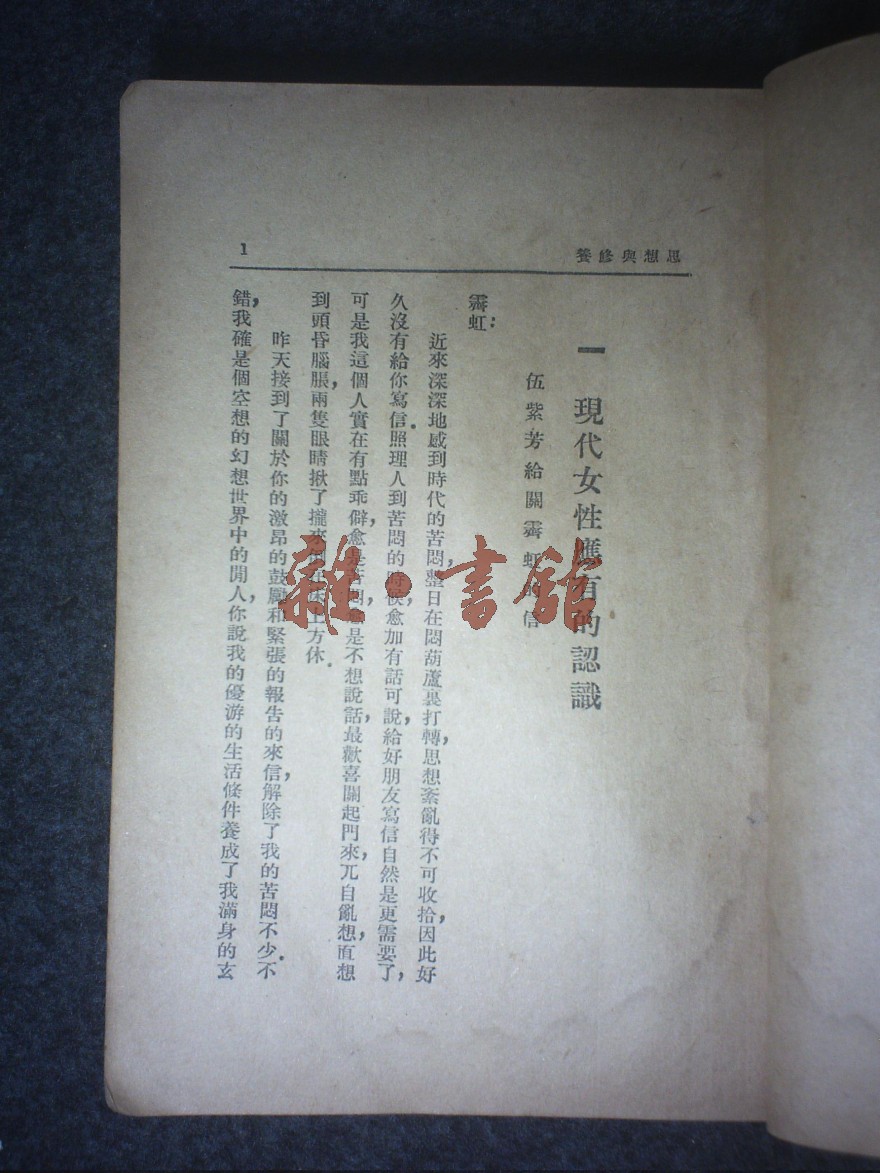 思想與修養
1
一 現代女性應有的認識
伍紫芳給關霽虹的信
霽虹：
近來深深地感到時代的苦悶，整日在悶葫蘆裏打轉，思想紊亂得不可收拾，因此好
久沒有給你寫信．照理人到苦悶的時候，愈加有話可說，給好朋友寫信自然是更需要了，
可是我這個人實在有點乖僻，愈是苦悶愈是不想說話，最歡喜關起門來，兀自亂想，直想
到頭昏腦脹，兩隻眼睛揪了攏來倒在床上方休．
昨天接到了關於你的激昂的鼓勵和緊張的報告的來信，解除了我的苦悶不少．不
錯，我確是個空想的幻想世界中的閒人，你說我的優游的生活條件養成了我滿身的玄
雜·書館